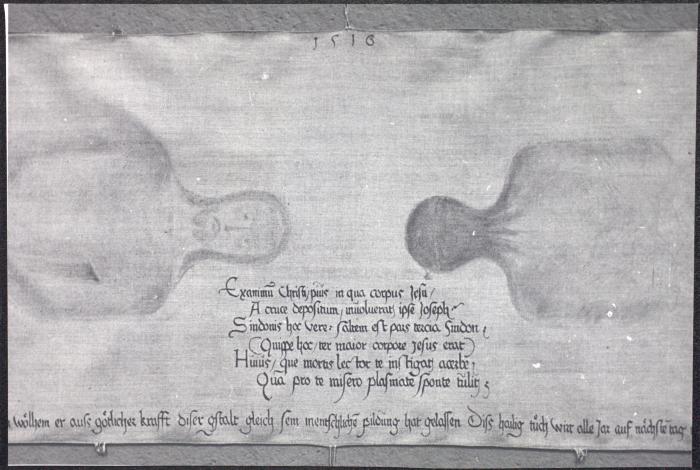 1516
Examimū Christi, pius in qua corpus Jesu,
A cruce depositum, inuoluerat ipse Joseph
Sindonis hoc vere: saltem est pars tercia Sindon:
(Quippe hoc, ter maior corpore Jesus erat)
Huius, que mortis lector te instigat acerbe,
Qua pro te misero plasmate sponte tulit;
wölhem er auß götlicher krafft diser gstalt gleich sein menschliche pildung hat gelassen Diß hailig tuch wirt alle Jar auf nächste tag